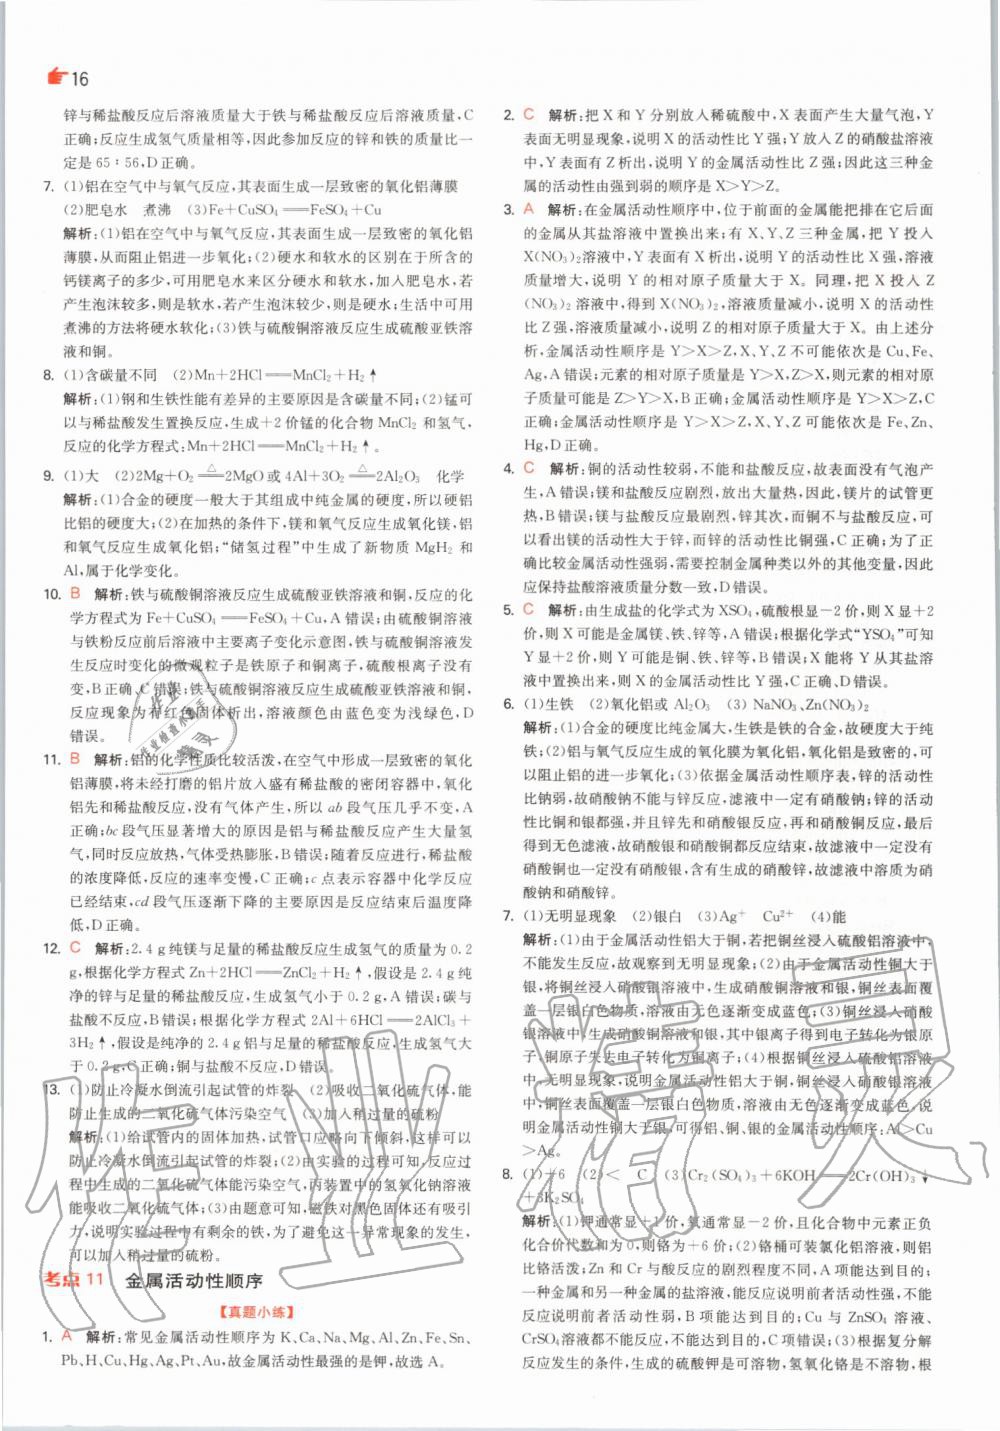 16
锌与稀盐酸反应后溶液质量大于铁与稀盐酸反应后溶液质量,C
正确;反应生成氢气质量相等,因此参加反应的锌和铁的质量比一
定是65∶56,D正确。
7. (1)铝在空气中与氧气反应,其表面生成一层致密的氧化铝薄膜
(2)肥皂水 煮沸 (3)Fe+CuSO₄══FeSO₄+Cu
解析:(1)铝在空气中与氧气反应,其表面生成一层致密的氧化铝
薄膜,从而阻止铝进一步氧化;(2)硬水和软水的区别在于所含的
钙镁离子的多少,可用肥皂水来区分硬水和软水,加入肥皂水,若
产生泡沫较多,则是软水,若产生泡沫较少,则是硬水;生活中可用
煮沸的方法将硬水软化;(3)铁与硫酸铜溶液反应生成硫酸亚铁溶
液和铜。
8. (1)含碳量不同 (2)Mn+2HCl══MnCl₂+H₂↑
解析:(1)钢和生铁性能有差异的主要原因是含碳量不同;(2)锰可
以与稀盐酸发生置换反应,生成+2价锰的化合物MnCl₂和氢气,
反应的化学方程式:Mn+2HCl══MnCl₂+H₂↑。
9. (1)大 (2)2Mg+O₂═△═2MgO或4Al+3O₂═△═2Al₂O₃ 化学
解析:(1)合金的硬度一般大于其组成中纯金属的硬度,所以硬铝
比铝的硬度大;(2)在加热的条件下,镁和氧气反应生成氧化镁,铝
和氧气反应生成氧化铝;“储氢过程”中生成了新物质MgH₂和
Al,属于化学变化。
10. B 解析:铁与硫酸铜溶液反应生成硫酸亚铁溶液和铜,反应的化
学方程式为Fe+CuSO₄══FeSO₄+Cu,A错误;由硫酸铜溶液
与铁粉反应前后溶液中主要离子变化示意图,铁与硫酸铜溶液发
生反应时变化的微观粒子是铁原子和铜离子,硫酸根离子没有
变,B正确、C错误;铁与硫酸铜溶液反应生成硫酸亚铁溶液和铜,
反应现象为有红色固体析出,溶液颜色由蓝色变为浅绿色,D
错误。
11. B 解析:铝的化学性质比较活泼,在空气中形成一层致密的氧化
铝薄膜,将未经打磨的铝片放入盛有稀盐酸的密闭容器中,氧化
铝先和稀盐酸反应,没有气体产生,所以ab段气压几乎不变,A
正确;bc段气压显著增大的原因是铝与稀盐酸反应产生大量氢
气,同时反应放热,气体受热膨胀,B错误;随着反应进行,稀盐酸
的浓度降低,反应的速率变慢,C正确;c点表示容器中化学反应
已经结束,cd段气压逐渐下降的主要原因是反应结束后温度降
低,D正确。
12. C 解析:2.4 g纯镁与足量的稀盐酸反应生成氢气的质量为0.2
g,根据化学方程式Zn+2HCl══ZnCl₂+H₂↑,假设是2.4 g纯
净的锌与足量的稀盐酸反应,生成氢气小于0.2 g,A错误;碳与
盐酸不反应,B错误;根据化学方程式2Al+6HCl══2AlCl₃+
3H₂↑,假设是纯净的2.4 g铝与足量的稀盐酸反应,生成氢气大
于0.2 g,C正确;铜与盐酸不反应,D错误。
13. (1)防止冷凝水倒流引起试管的炸裂 (2)吸收二氧化硫气体,能
防止生成的二氧化硫气体污染空气 (3)加入稍过量的硫粉
解析:(1)给试管内的固体加热,试管口应略向下倾斜,这样可以
防止冷凝水倒流引起试管的炸裂;(2)由实验的过程可知,反应过
程中生成的二氧化硫气体能污染空气,丙装置中的氢氧化钠溶液
能吸收二氧化硫气体;(3)由题意可知,磁铁对黑色固体还有吸引
力,说明实验过程中有剩余的铁,为了避免这一异常现象的发生,
可以加入稍过量的硫粉。
考点11 金属活动性顺序
【真题小练】
1. A 解析:常见金属活动性顺序为K、Ca、Na、Mg、Al、Zn、Fe、Sn、
Pb、H、Cu、Hg、Ag、Pt、Au,故金属活动性最强的是钾,故选A。
2. C 解析:把X和Y分别放入稀硫酸中,X表面产生大量气泡,Y
表面无明显现象,说明X的活动性比Y强;Y放入Z的硝酸盐溶液
中,Y表面有Z析出,说明Y的金属活动性比Z强;因此这三种金
属的活动性由强到弱的顺序是X>Y>Z。
3. A 解析:在金属活动性顺序中,位于前面的金属能把排在它后面
的金属从其盐溶液中置换出来;有X、Y、Z三种金属,把Y投入
X(NO₃)₂溶液中,Y表面有X析出,说明Y的活动性比X强,溶液
质量增大,说明Y的相对原子质量大于X。同理,把X投入Z
(NO₃)₂溶液中,得到X(NO₃)₂,溶液质量减小,说明X的活动性
比Z强,溶液质量减小,说明Z的相对原子质量大于X。由上述分
析,金属活动性顺序是Y>X>Z,X、Y、Z不可能依次是Cu、Fe、
Ag,A错误;元素的相对原子质量是Y>X,Z>X,则元素的相对原
子质量可能是Z>Y>X,B正确;金属活动性顺序是Y>X>Z,C
正确;金属活动性顺序是Y>X>Z,X、Y、Z可能依次是Fe、Zn、
Hg,D正确。
4. C 解析:铜的活动性较弱,不能和盐酸反应,故表面没有气泡产
生,A错误;镁和盐酸反应剧烈,放出大量热,因此,镁片的试管更
热,B错误;镁与盐酸反应最剧烈,锌其次,而铜不与盐酸反应,可
以看出镁的活动性大于锌,而锌的活动性比铜强,C正确;为了正
确比较金属活动性强弱,需要控制金属种类以外的其他变量,因此
应保持盐酸溶液质量分数一致,D错误。
5. C 解析:由生成盐的化学式为XSO₄,硫酸根显-2价,则X显+2
价,则X可能是金属镁、铁、锌等,A错误;根据化学式“YSO₄”可知
Y显+2价,则Y可能是铜、铁、锌等,B错误;X能将Y从其盐溶
液中置换出来,则X的活动性比Y强,C正确、D错误。
6. (1)生铁 (2)氧化铝或Al₂O₃ (3)NaNO₃、Zn(NO₃)₂
解析:(1)合金的硬度比纯金属大,生铁是铁的合金,故硬度大于纯
铁;(2)铝与氧气反应生成的氧化膜为氧化铝,氧化铝是致密的,可
以阻止铝的进一步氧化;(3)依据金属活动性顺序表,锌的活动性
比钠弱,故硝酸钠不能与锌反应,滤液中一定有硝酸钠;锌的活动
性比铜和银都强,并且锌先和硝酸银反应,再和硝酸铜反应,最后
得到无色滤液,故硝酸银和硝酸铜都反应结束,故滤液中一定没有
硝酸铜,一定没有硝酸银,含有生成的硝酸锌,故滤液中溶质为硝
酸钠和硝酸锌。
7. (1)无明显现象 (2)银白 (3)Ag⁺ Cu²⁺ (4)能
解析:(1)由于金属活动性铝大于铜,若把铜丝浸入硫酸铝溶液中,
不能发生反应,故观察到无明显现象;(2)由于金属活动性铜大于
银,将铜丝浸入硝酸银溶液中,生成硝酸铜溶液和银,铜丝表面覆
盖一层银白色物质,溶液由无色逐渐变成蓝色;(3)铜丝浸入硝酸
银溶液中,生成硝酸铜溶液和银,其中银离子得到电子转化为银原
子,铜原子失去电子转化为铜离子;(4)根据铜丝浸入硫酸铝溶液
中,无明显现象,说明金属活动性铝大于铜;铜丝浸入硝酸银溶液
中,铜丝表面覆盖一层银白色物质,溶液由无色逐渐变成蓝色,说
明金属活动性铜大于银,可得铝、铜、银的金属活动性顺序:Al>Cu
>Ag。
8. (1)+6 (2)< C (3)Cr₂(SO₄)₃+6KOH══2Cr(OH)₃↓
+3K₂SO₄
解析:(1)钾通常显+1价,氧通常显-2价,且化合物中元素正负
化合价的代数和为0,故铬为+6价;(2)铬桶可装氯化铝溶液,则铝
比铬活泼;Zn、Cu与酸反应的剧烈程度不同,A项能达到目的;
一种金属和另一种金属的盐溶液,能反应说明前者活动性强,不能
反应说明前者活动性弱,B项能达到目的;Cu与ZnSO₄溶液、
CrSO₄溶液都不能反应,不能达到目的,C项错误;(3)根据复分解
反应发生的条件,生成的硫酸钾是可溶物,氢氧化铬是不溶物,根
作业精灵
作业
作业检查小助手
精灵